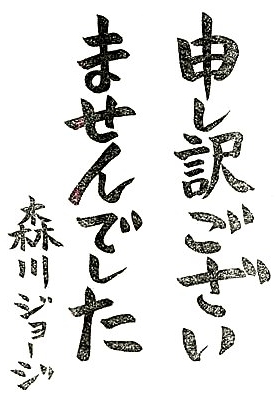 申し訳ござい
ませんでした
森川ジョージ